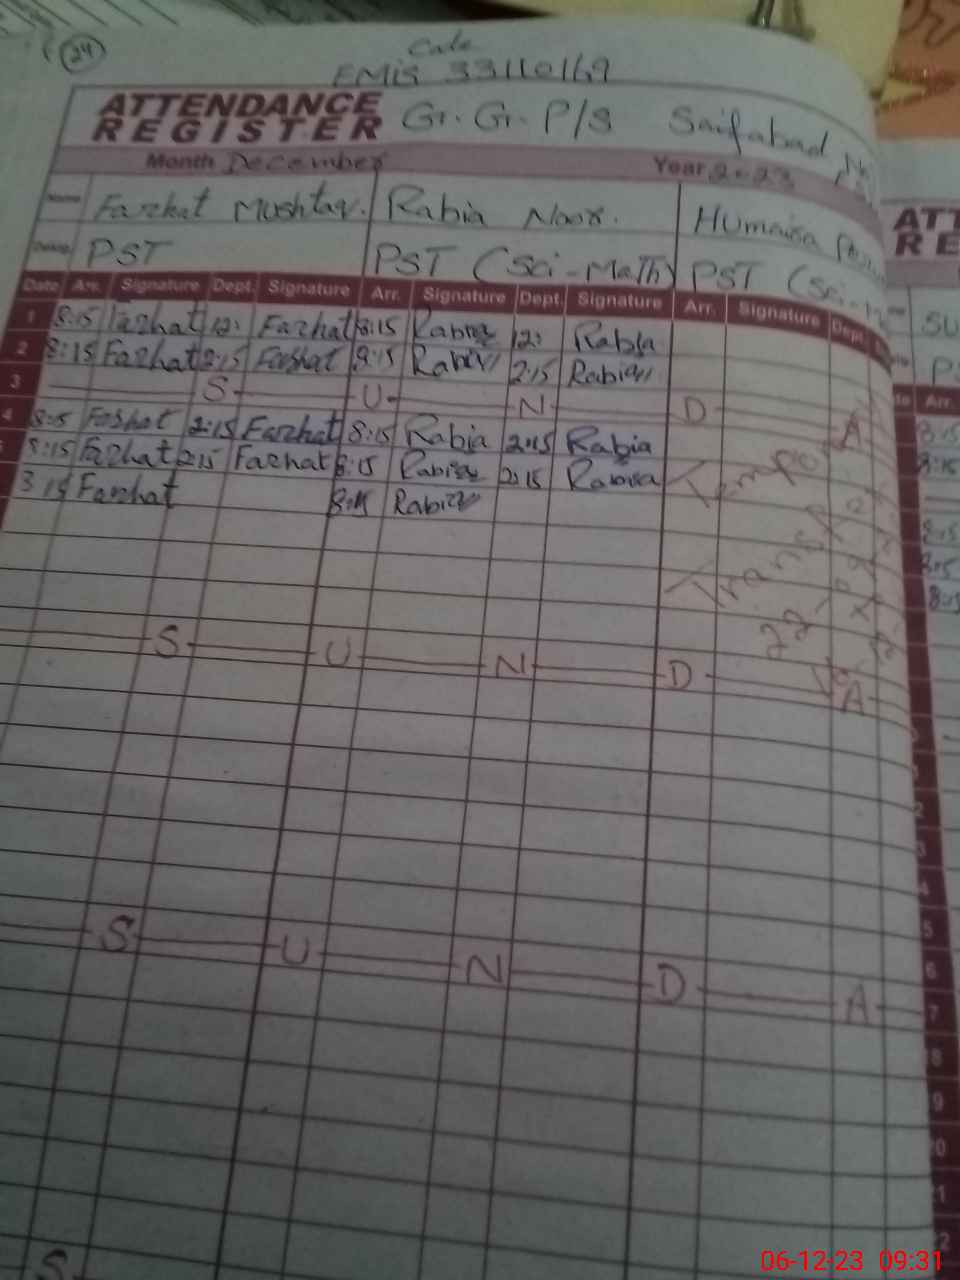 24
Code
EMIS 33110169
ATTENDANCE
REGISTER
Gr. Gr. P/S Saifabad
Month December Year 2023
Name Farhat Mushtaq. Rabia Noor. Humaira
Desig: PST PST (Sci-Math) PST (Sci-
Date Arr. Signature Dept. Signature Arr. Signature Dept. Signature Arr. Signature Dept.
1 8:15 Farhat 12: Farhat 8:15 Rabia 12: Rabia
2 8:15 Farhat 2:15 Farhat 8:15 Rabia 2:15 Rabia
3 S U N D A
4 8:15 Farhat 2:15 Farhat 8:15 Rabia 2:15 Rabia
5 8:15 Farhat 2:15 Farhat 8:15 Rabia 2:15 Rabia
8:15 Farhat 8:15 Rabia
S U N D A
S U N D A
S
ATT
RE
SU
Arr.
8:15
8:15
8:15
8:15
8:15
2
3
4
5
6
7
8
9
06-12-23 09:31